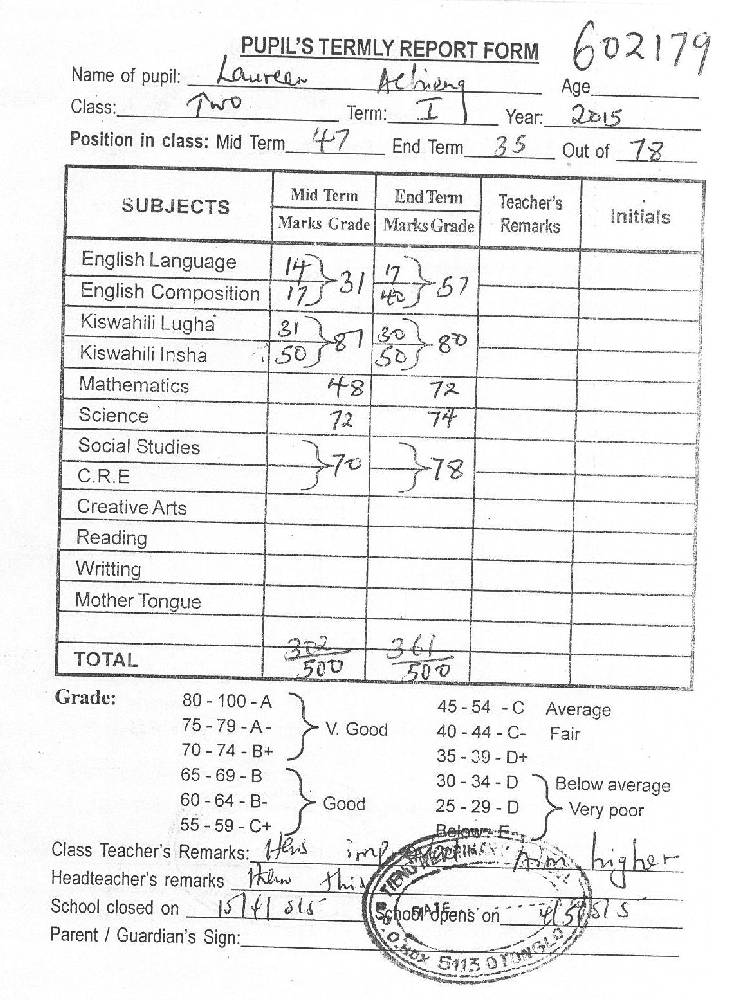 PUPIL'S TERMLY REPORT FORM 602179
Name of pupil: Laureen Achieng Age
Class: Two Term: I Year: 2015
Position in class: Mid Term 47 End Term 35 Out of 78
SUBJECTS Mid Term End Term Teacher's Remarks Initials
Marks Grade Marks Grade
English Language 14 17
31 57
English Composition 17 40
Kiswahili Lugha 31 30
81 80
Kiswahili Insha 50 50
Mathematics 48 72
Science 72 74
Social Studies
70 78
C.R.E
Creative Arts
Reading
Writting
Mother Tongue
TOTAL 302/500 361/500
Grade:
80 - 100 - A 45 - 54 - C Average
75 - 79 - A- V. Good 40 - 44 - C- Fair
70 - 74 - B+ 35 - 39 - D+
65 - 69 - B 30 - 34 - D Below average
60 - 64 - B- Good 25 - 29 - D Very poor
55 - 59 - C+ Below - E
Class Teacher's Remarks: Has Aim higher
Headteacher's remarks this
School closed on 15/4/ School opens on 4/5/
Parent / Guardian's Sign:
DATE
P.O. Box 5113 OTONGLO